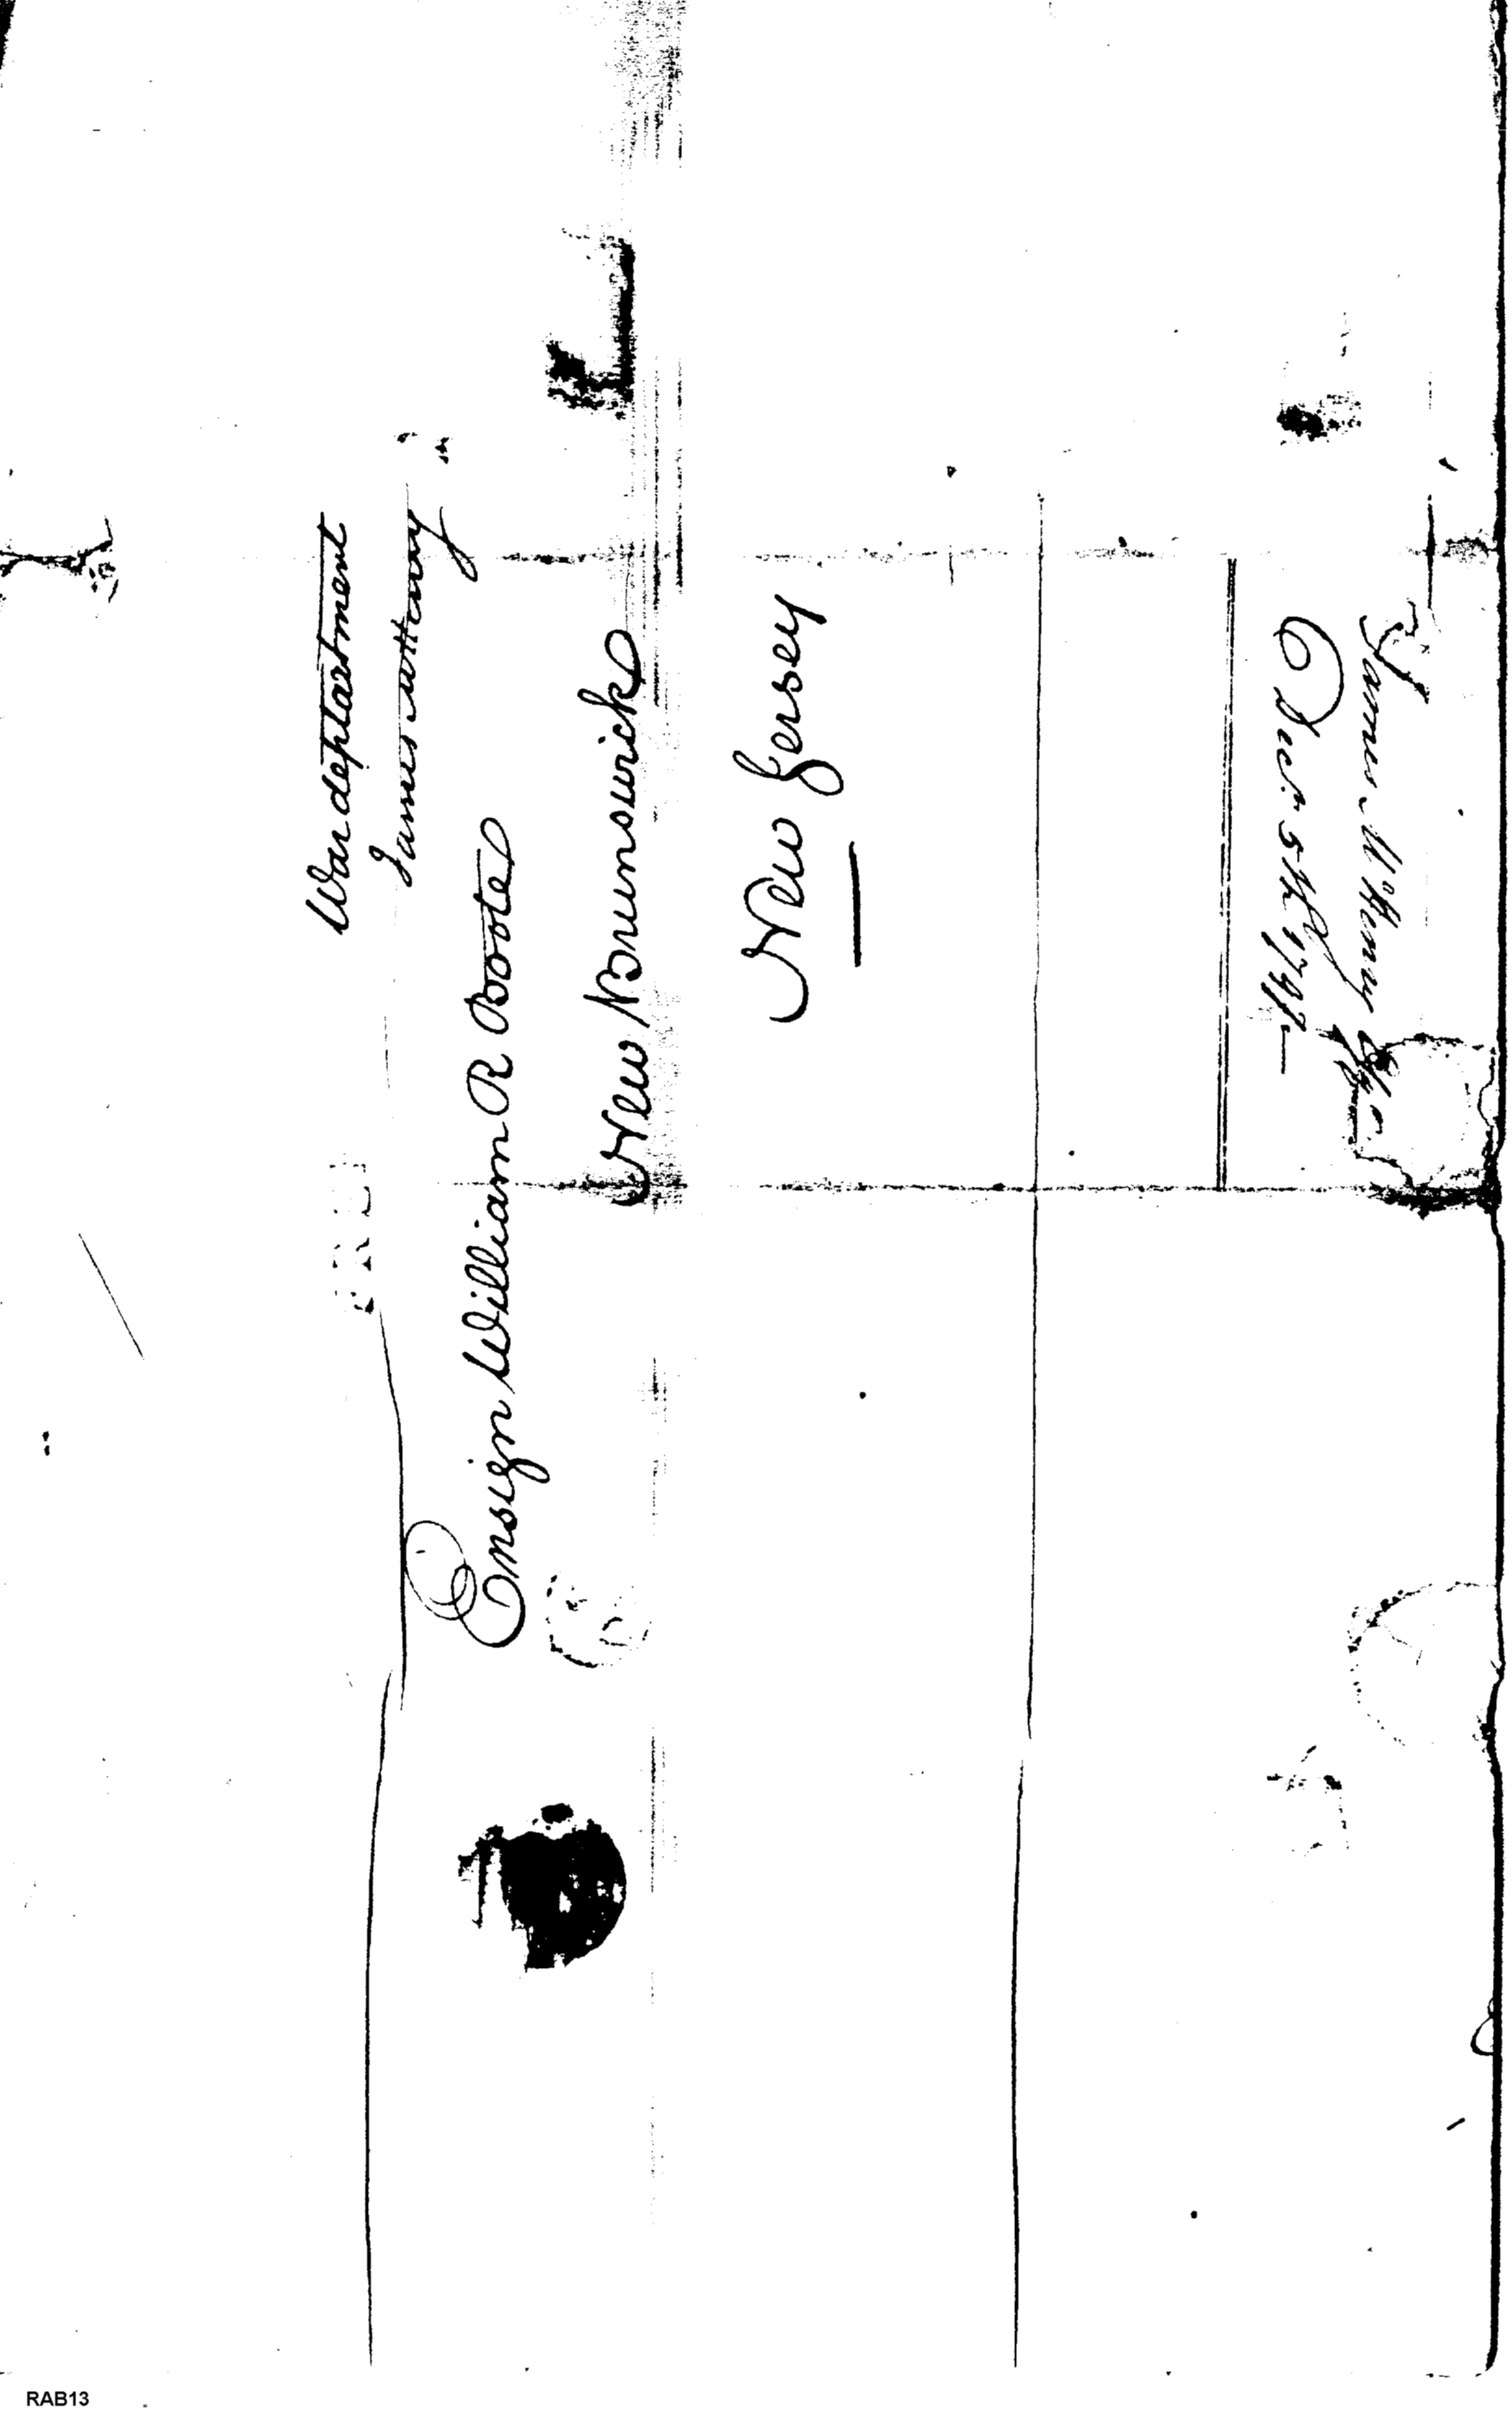 War department
James McHenry
FREE
Ensign William R Boote
New Brunswick
New Jersey
James McHenry
Decr 5th 1797
RAB13